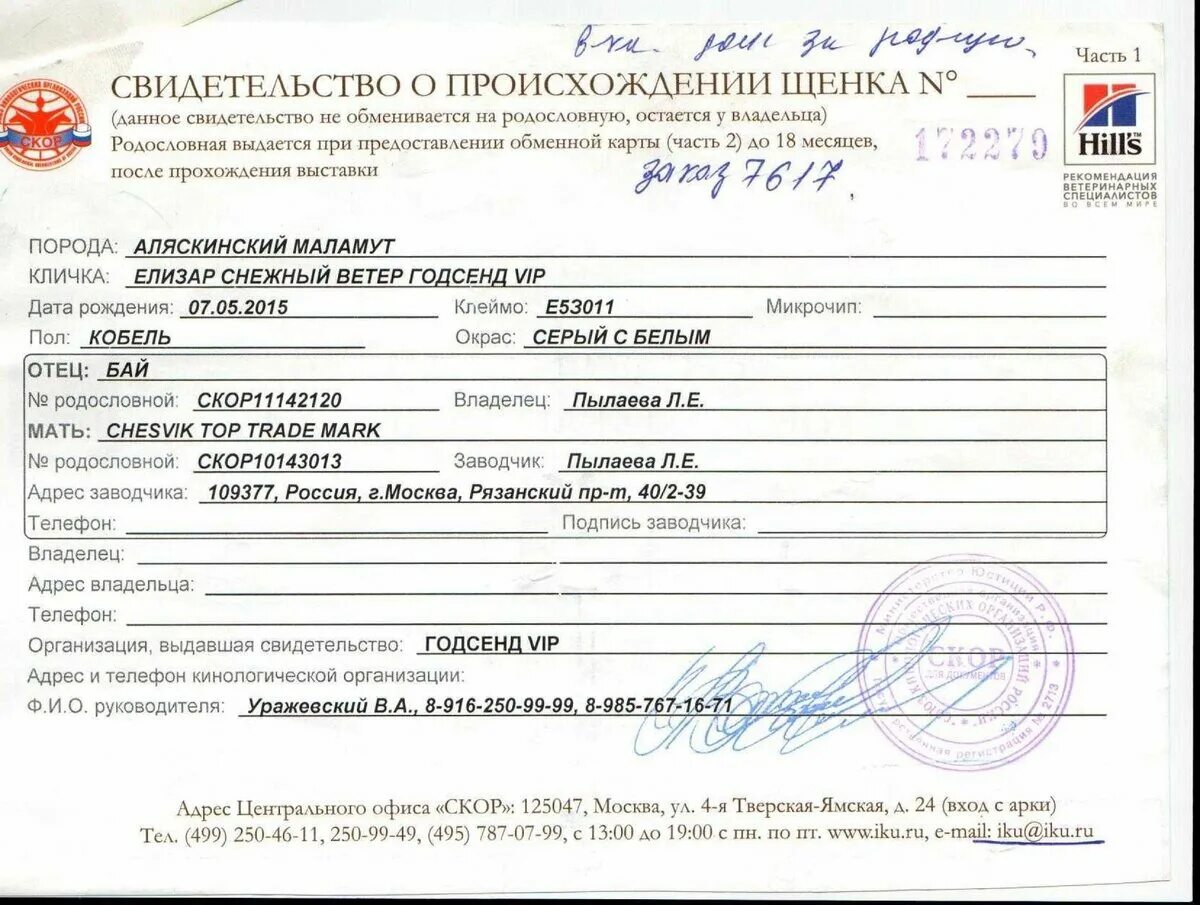 за
Часть 1
СВИДЕТЕЛЬСТВО О ПРОИСХОЖДЕНИИ ЩЕНКА N° ____
(данное свидетельство не обменивается на родословную, остается у владельца)
Родословная выдается при предоставлении обменной карты (часть 2) до 18 месяцев,
после прохождения выставки
172279
заказ 7617
СКОР
Hill's™
РЕКОМЕНДАЦИЯ
ВЕТЕРИНАРНЫХ
СПЕЦИАЛИСТОВ
ВО ВСЕМ МИРЕ
ПОРОДА: АЛЯСКИНСКИЙ МАЛАМУТ
КЛИЧКА: ЕЛИЗАР СНЕЖНЫЙ ВЕТЕР ГОДСЕНД VIP
Дата рождения: 07.05.2015 Клеймо: Е53011 Микрочип:
Пол: КОБЕЛЬ Окрас: СЕРЫЙ С БЕЛЫМ
ОТЕЦ: БАЙ
№ родословной: СКОР11142120 Владелец: Пылаева Л.Е.
МАТЬ: CHESVIK TOP TRADE MARK
№ родословной: СКОР10143013 Заводчик: Пылаева Л.Е.
Адрес заводчика: 109377, Россия, г.Москва, Рязанский пр-т, 40/2-39
Телефон: Подпись заводчика:
Владелец:
Адрес владельца:
Телефон:
Организация, выдавшая свидетельство: ГОДСЕНД VIP
Адрес и телефон кинологической организации:
Ф.И.О. руководителя: Уражевский В.А., 8-916-250-99-99, 8-985-767-16-71
Министерство Юстиции Р.Ф.
регистрация № 2713
СКОР
ДЛЯ ДОКУМЕНТОВ
Адрес Центрального офиса «СКОР»: 125047, Москва, ул. 4-я Тверская-Ямская, д. 24 (вход с арки)
Тел. (499) 250-46-11, 250-99-49, (495) 787-07-99, с 13:00 до 19:00 с пн. по пт. www.iku.ru, e-mail: iku@iku.ru